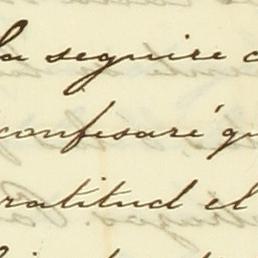 la seguire c
confesaré qu
ratitud el